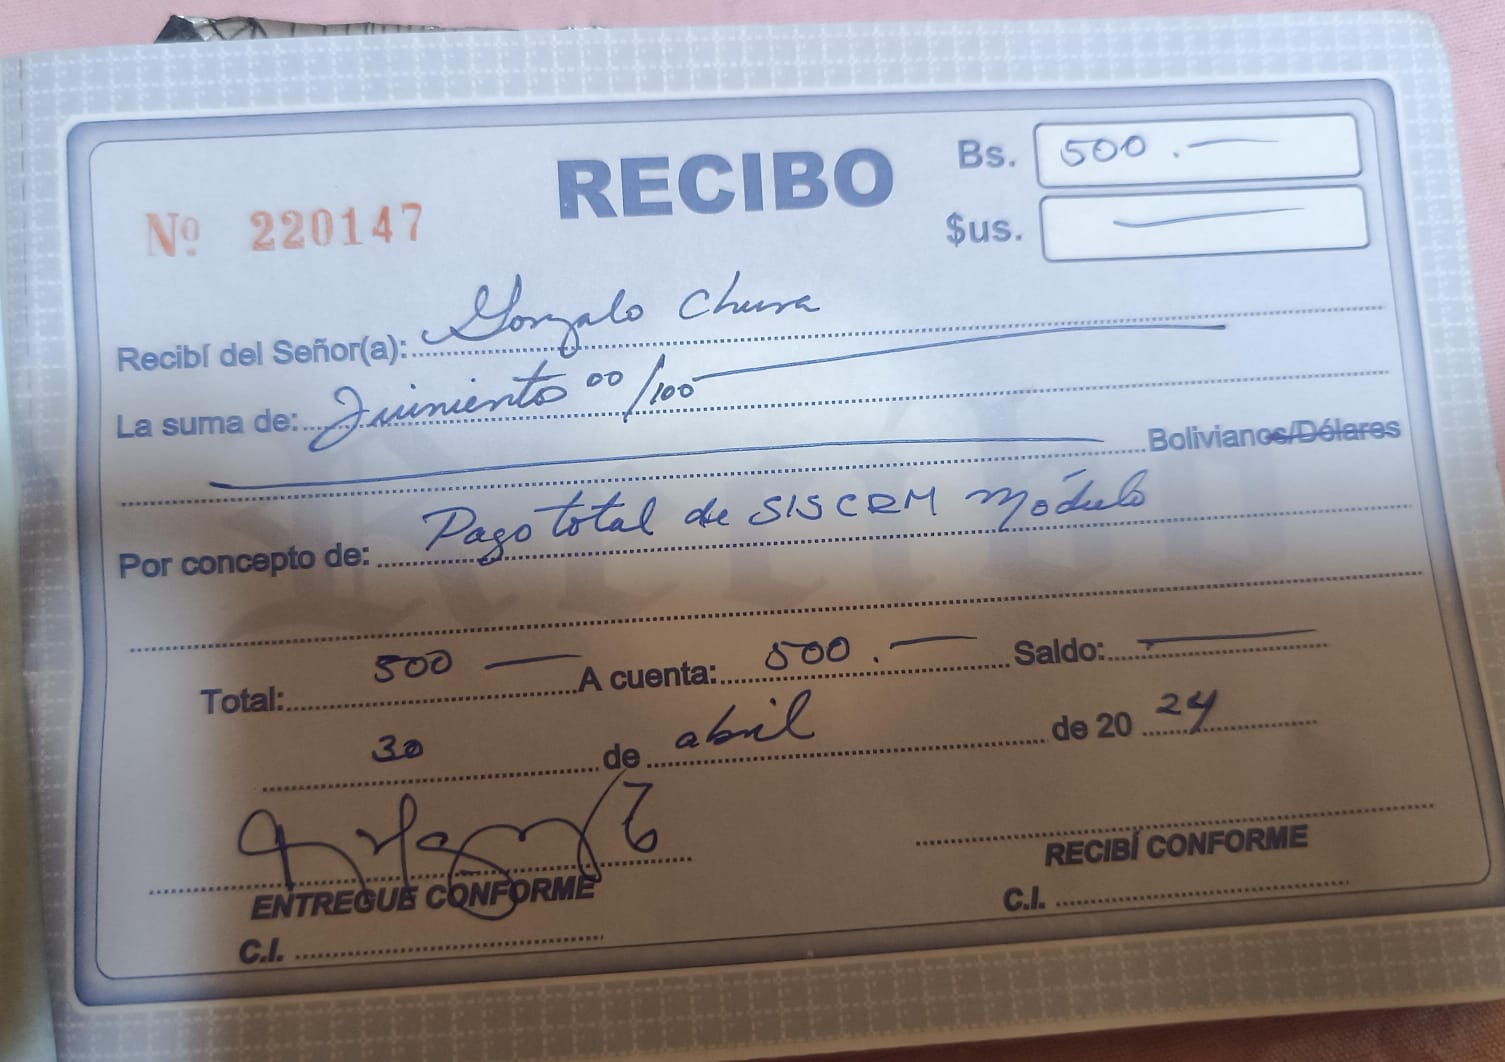 RECIBO
Bs. 500.—
Nº 220147
$us. —
Recibí del Señor(a): Gonzalo Chura
La suma de: Quinientos 00/100
Bolivianos/Dólares
Por concepto de: Pago total de SISCRM Módulo
Total: 500 — A cuenta: 500.— Saldo: —
30 de abril de 2024
ENTREGUE CONFORME
RECIBÍ CONFORME
C.I.
C.I.